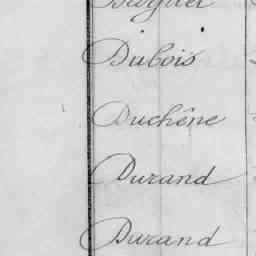 Dubois
Duchêne
Durand
Durand